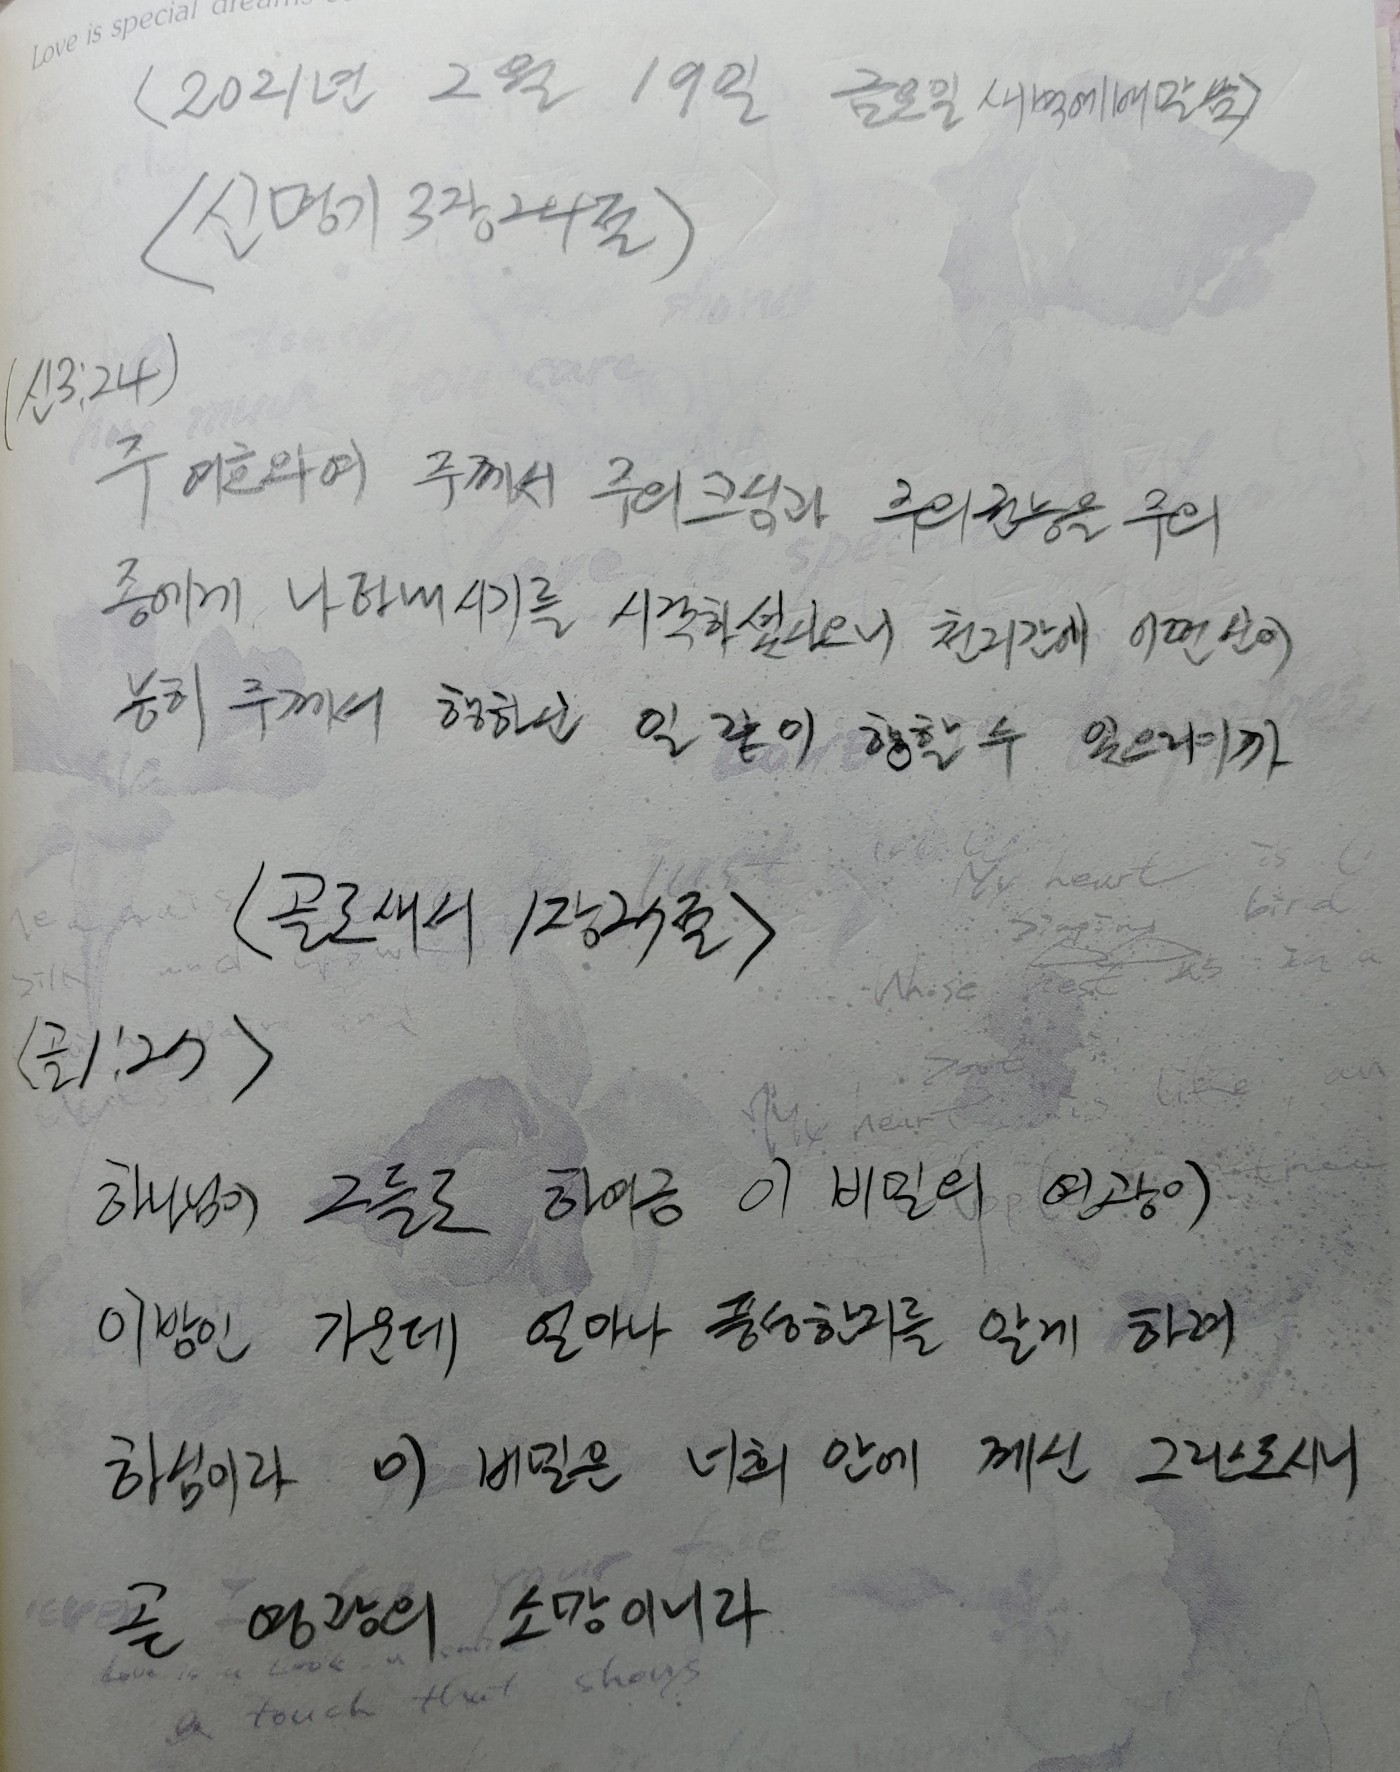 Love is special dreams
(2021년 2월 19일 금요일 새벽예배말씀)
(신명기 3장24절)
(신3:24)
주 여호와여 주께서 주의크심과 주의권능을 주의
종에게 나타내시기를 시작하셨사오니 천지간에 어떤신이
능히 주께서 행하신 일 같이 행할 수 있으리이까
<골로새서 1장27절>
<골1:27>
하나님이 그들로 하여금 이 비밀의 영광이
이방인 가운데 얼마나 풍성한지를 알게 하려
하심이라 이 비밀은 너희 안에 계신 그리스도시니
곧 영광의 소망이니라
My heart is
singing bird
Whose nest is in a
My heart is like an
Love is a look a
a touch that shows